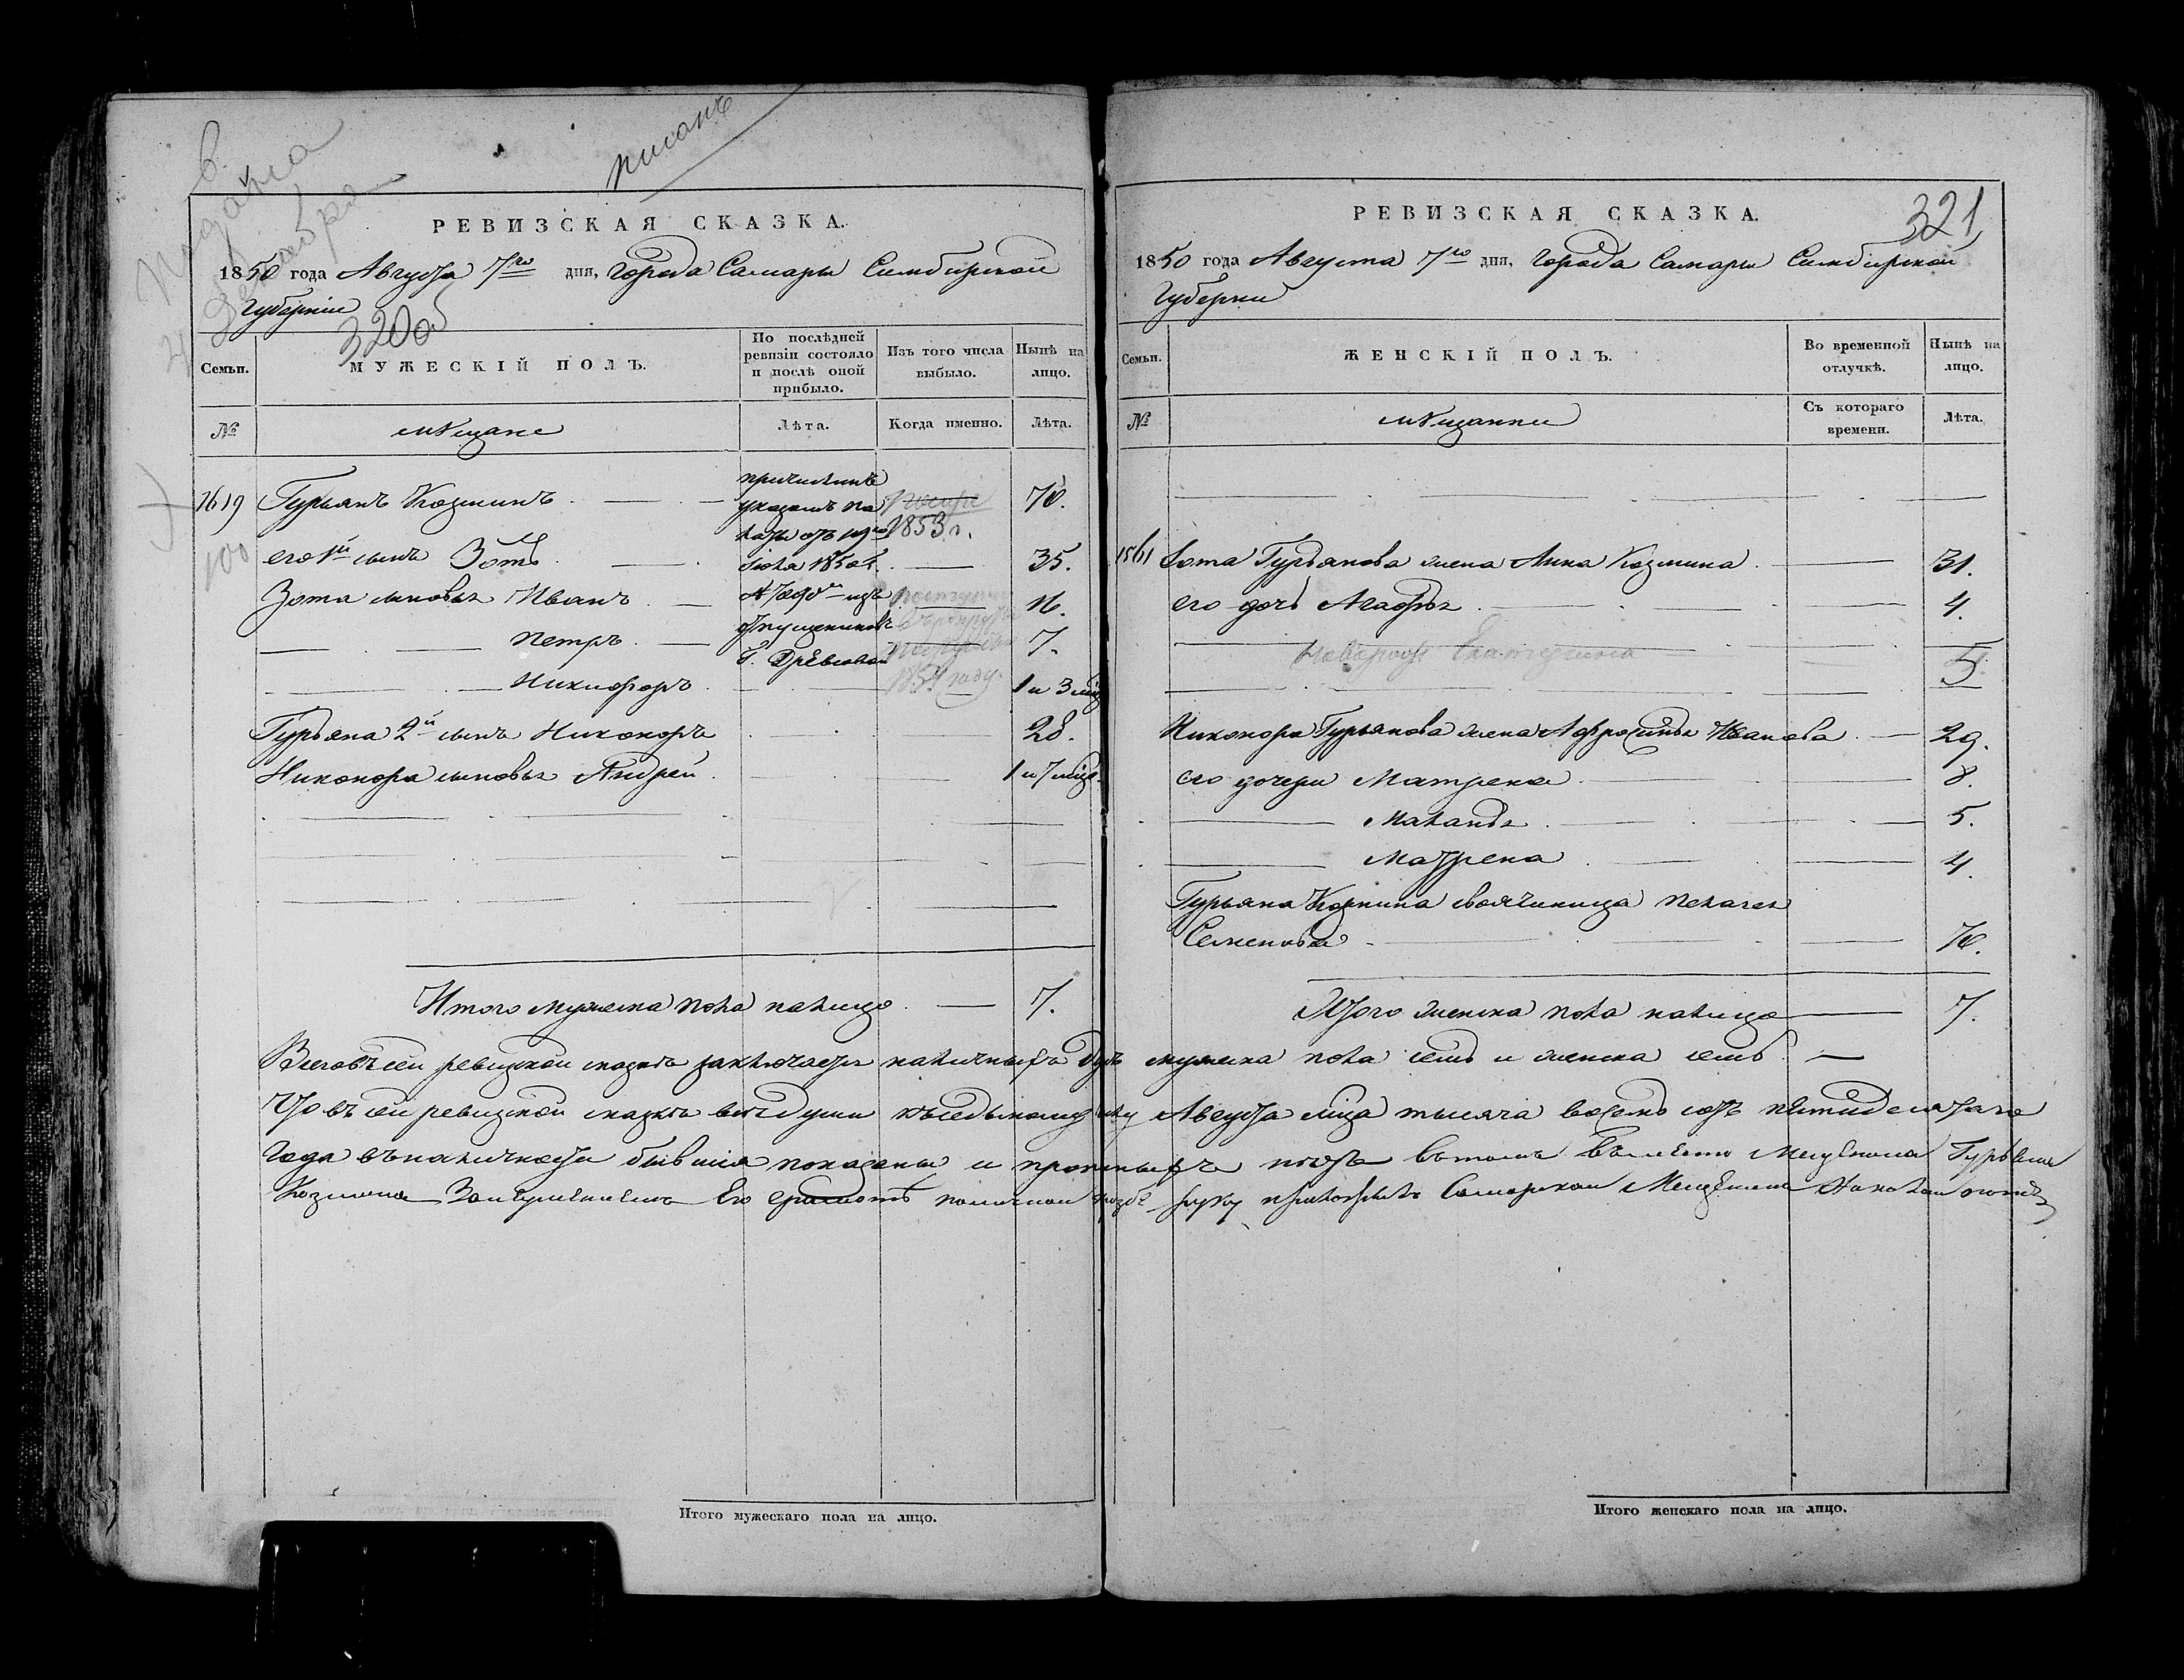 писанъ
РЕВИЗСКАЯ СКАЗКА.
1850 года Августа 7го дня, города Самары Симбирской
Губернiи
320об
Семьи.
МУЖЕСКІЙ ПОЛЪ.
По послѣдней ревизіи состояло и послѣ оной прибыло.
Изъ того числа выбыло.
Нынѣ на лицо.
№
мѣщане
Лѣта.
Когда именно.
Лѣта.
1619 Гурьянъ Козминъ 70.
причисленъ
указомъ па
латы отъ
Iюля 1850 г.
изъ
отпущенниковъ
Г.
1853 г.
100
его 1й сынъ Зотъ 35.
Зота сыновья Иванъ 16.
Петръ 7.
Никифоръ 1 и 3 мѣс
1854 году
Гурьяна 2й сынъ Никоноръ 28.
Никонора сыновья Андрей 1 и 7 мѣся.
Итого мужеска пола налицо 7.
РЕВИЗСКАЯ СКАЗКА.
321
1850 года Августа 7го дня, города Самары Симбирской
Губернiи
Семьи.
ЖЕНСКІЙ ПОЛЪ.
Во временной отлучкѣ.
Нынѣ на лицо.
№
мѣщанки
Съ котораго времени.
Лѣта.
1561 Зота Гурьянова жена Анна Козмина 31.
его дочь Агафья 4.
Екатерина 5
Никонора Гурьянова жена Афросинья Иванова 29.
его дочери Матрена 8.
Маланья 5.
Матрена 4.
Гурьяна Козмина своячиница Пелагея
Семенова 70.
Итого женска пола налицо 7.
Всего въ сей ревизской сказкѣ заключается наличныхъ душъ мужеска пола семь и женска семь.
Что въ сей ревизской сказкѣ всѣ души къ седьмому числу Августа мѣсяца тысяча восемь сотъ пятидесятаго
года въ наличности бывшiя показаны и прописныхъ нѣтъ въ томъ вмѣсто Мещенина Гурьяна
Козмина За неумениемъ Его грамотѣ поличной прозбѣ руку приложилъ Самарской Мещенинъ
Итого мужескаго пола на лицо.
Итого женскаго пола на лицо.